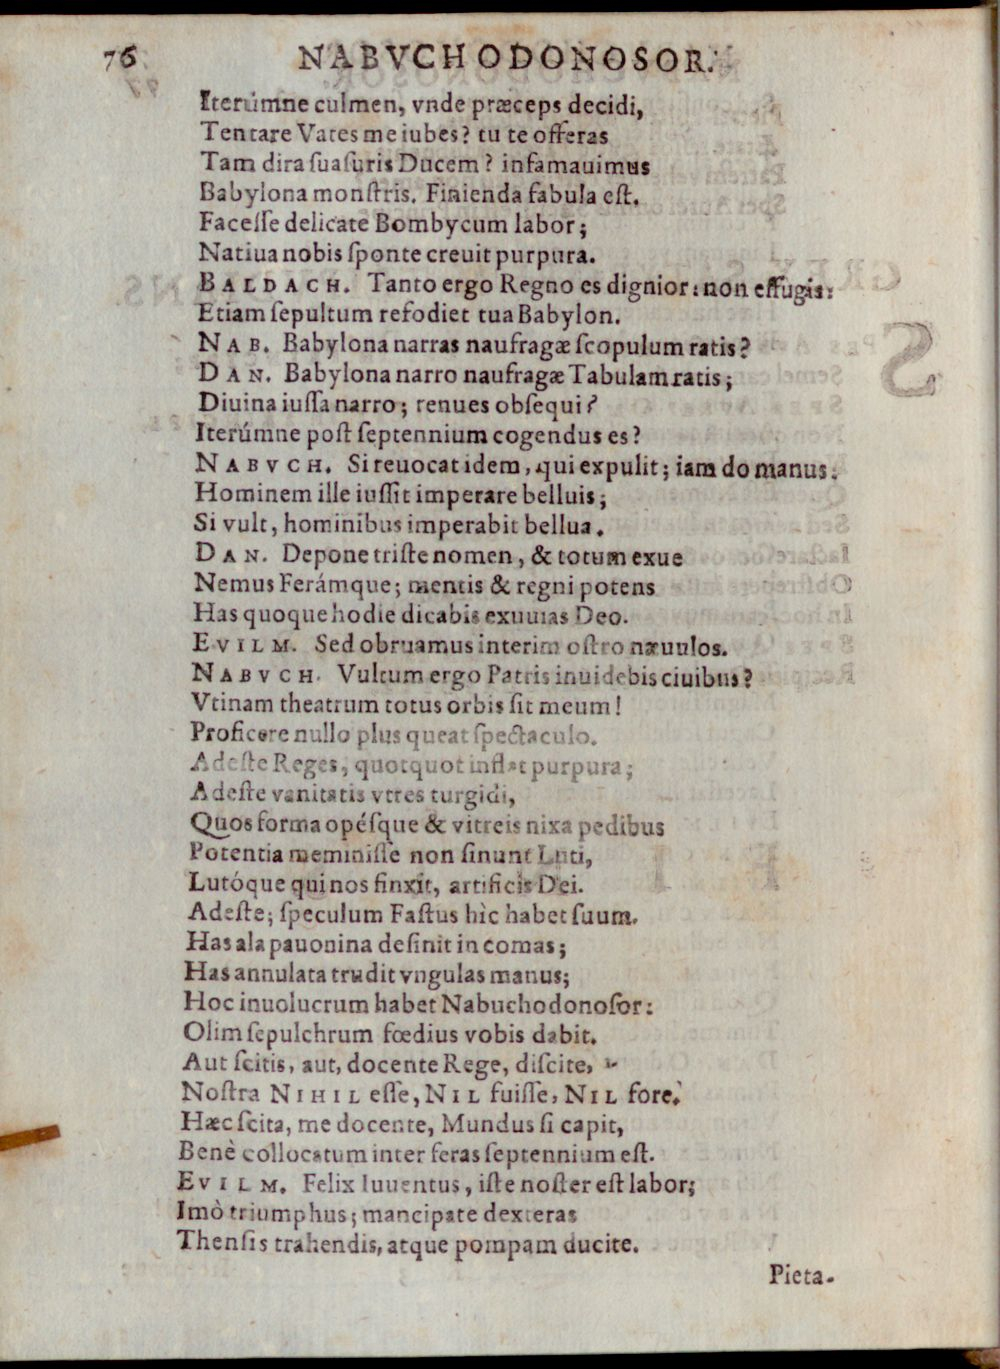 76 NABVCHODONOSOR.
Iterúmne culmen, vnde præceps decidi,
Tentare Vates me iubes? tu te offeras
Tam dira suasuris Ducem? infamauimus
Babylona monstris. Finienda fabula est.
Facesse delicate Bombycum labor;
Natiua nobis sponte creuit purpura.
BALDACH. Tanto ergo Regno es dignior: non effugis:
Etiam sepultum refodiet tua Babylon.
NAB. Babylona narras naufragæ scopulum ratis?
DAN. Babylona narro naufragæ Tabulam ratis;
Diuina iussa narro; renues obsequi?
Iterúmne post septennium cogendus es?
NABVCH. Si reuocat idem, qui expulit; iam do manus.
Hominem ille iussit imperare belluis;
Si vult, hominibus imperabit bellua.
DAN. Depone triste nomen, & totum exue
Nemus Ferámque; mentis & regni potens
Has quoque hodie dicabis exuuias Deo.
EVILM. Sed obruamus interim ostro næuulos.
NABVCH. Vultum ergo Patris inuidebis ciuibus?
Vtinam theatrum totus orbis sit meum!
Proficere nullo plus queat spectaculo.
Adeste Reges, quotquot inflat purpura;
Adeste vanitatis vtres turgidi,
Quos forma opésque & vitreis nixa pedibus
Potentia meminisse non sinunt Luti,
Lutóque qui nos finxit, artificis Dei.
Adeste; speculum Fastus hìc habet suum.
Has ala pauonina desinit in comas;
Has annulata trudit vngulas manus;
Hoc inuolucrum habet Nabuchodonosor:
Olim sepulchrum fœdius vobis dabit.
Aut scitis, aut, docente Rege, discite,
Nostra NIHIL esse, NIL fuisse, NIL fore.
Hæc scita, me docente, Mundus si capit,
Benè collocatum inter feras septennium est.
EVILM. Felix Iuuentus, iste noster est labor;
Imò triumphus; mancipate dexteras
Thensis trahendis, atque pompam ducite.
Pieta-